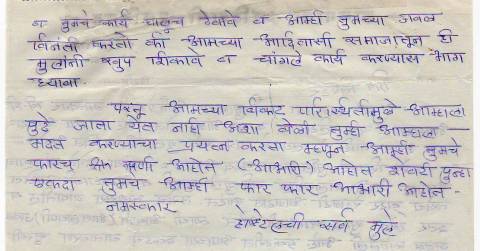 व तुमचे कार्य चालुच ठेवावे व आम्ही तुमच्या जवळ
विनंती करतो की आमच्या आदिवासी समाजातून ही
मुलांनी खुप शिकावे व चांगले कार्य करण्यास भाग
घ्यावा
परंतू आमच्या बिकट परिस्थितीमुळे आम्हाला
पुढे जाता येत नाही अशा वेळी तुम्ही आम्हाला
मदत करण्याचा प्रयत्न करता म्हणून आम्ही तुमचे
फारच ऋणी आहोत (आभारी) आहोत शेवटी पुन्हा
एकदा तुमचे आम्ही फार फार आभारी आहोत -
नमस्कार
होस्टेलची सर्व मुले